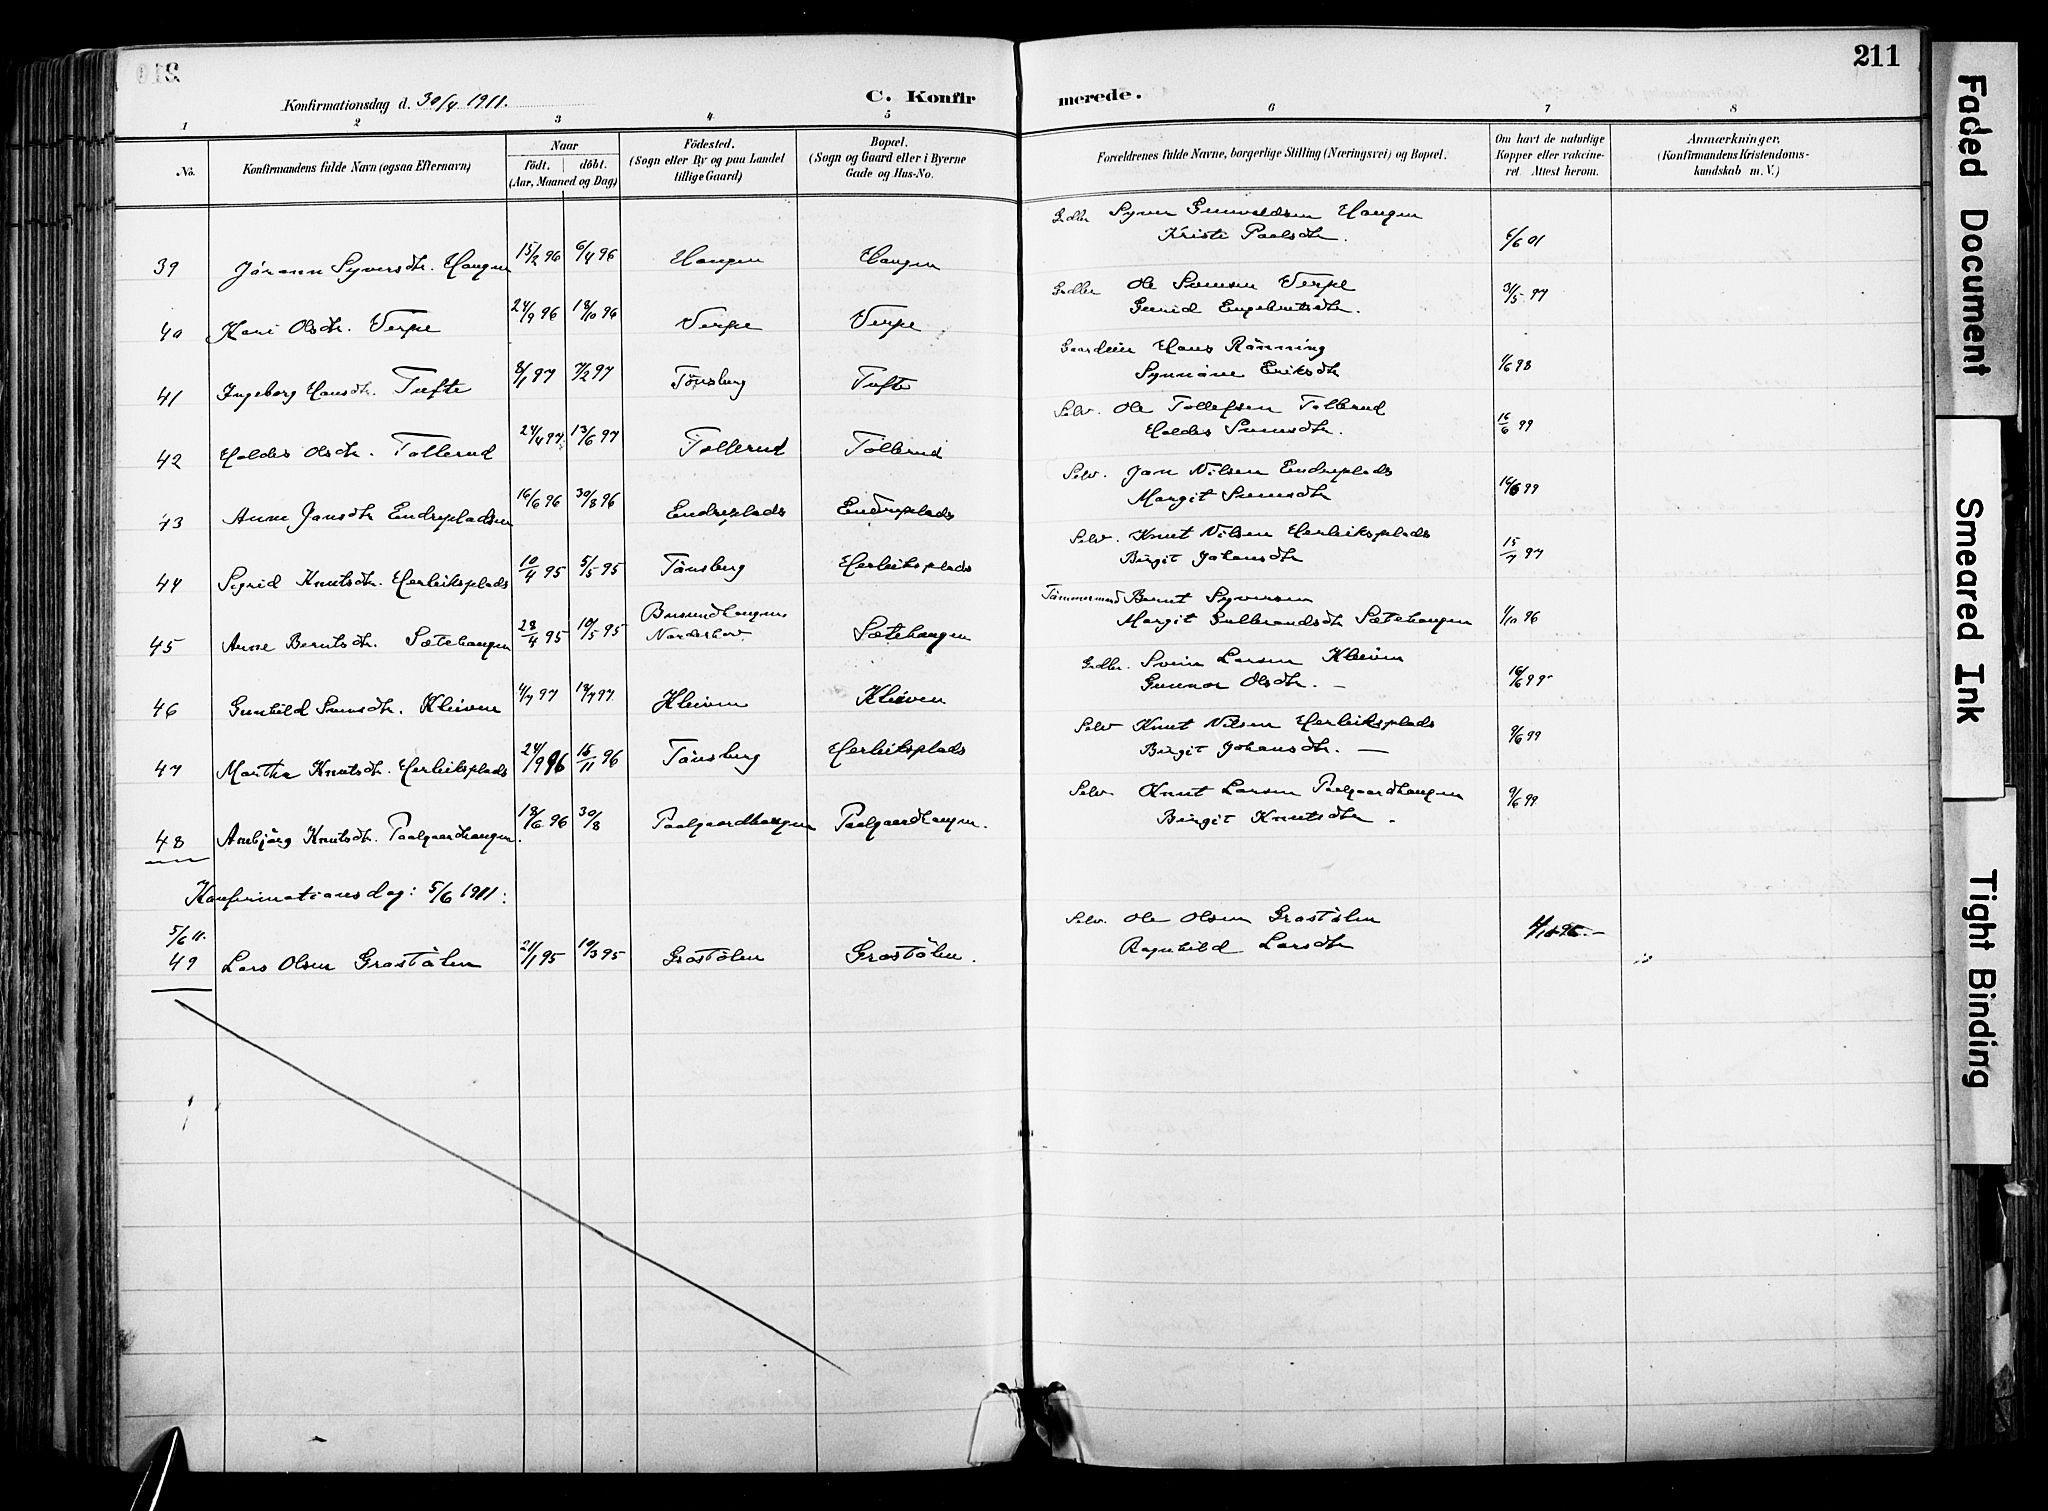 211
Konfirmationsdag d. 30/4 1911.
C. Konfirmerede.
1 2 3 4 5 6 7 8
No.
Konfirmandens fulde Navn (ogsaa Efternavn)
Naar
født. døbt.
(Aar, Maaned og Dag)
Fødested.
(Sogn eller By og paa Landet
tillige Gaard)
Bopæl.
(Sogn og Gaard eller i Byerne
Gade og Hus-No.
Forældrenes fulde Navne, borgerlige Stilling (Næringsvei) og Bopæl.
Om havt de naturlige
Kopper eller vakcine-
ret. Attest herom.
Anmærkninger.
(Konfirmandens Kristendoms-
kundskab m. V.)
Syver Gunvaldsen Haugen
39 Jörann Syversdtr. Haugen 15/2 96 6/4 96 Haugen Haugen Kristi Paalsdtr. 6/6 01
Ole Svensen Verpe
40 Kari Olsdtr. Verpe 24/9 96 18/10 96 Verpe Verpe Gunrid Engebretsdtr. 31/5 97
Hans Rönning
41 Ingeborg Hansdtr. Tufte 8/1 97 7/2 97 Tönsberg Tufte Synnöve Eriksdtr 1/6 98
Selv. Ole Tollefsen Tollerud
42 Holdis Olsdtr. Tollerud 24/4 97 13/6 97 Tollerud Tollerud Holdis Svensdtr. 16/6 99
Selv. Jon Nilsen Endreplads
43 Anne Jonsdtr Endrepladsen 16/6 96 30/8 96 Endreplads Endreplads Margit Svensdtr 16/6 99
Selv. Knut Nilsen Herleiksplads
44 Sigrid Knutsdtr. Herleiksplads 10/4 95 5/5 95 Tönsberg Herleiksplads Birgit Johansdtr 15/7 97
Tömmermand Bernt Syversen
45 Anne Berntsdtr. Sætehaugen 28/4 95 19/5 95 Busundhaugen Norderhov Sætehaugen Margit Gulbrandsdtr Sætehaugen 1/10 96
Svein Larsen Kleiven
46 Gunhild Svensdtr. Kleiven 4/7 97 18/7 97 Kleiven Kleiven Gunnor Olsdtr. — 16/6 99
Selv Knut Nilsen Herleiksplads
47 Martha Knutsdtr. Herleiksplads 24/9 96 15/11 96 Tönsberg Herleiksplads Birgit Johansdtr. — 9/6 99
Selv. Knut Larsen Paalgaardhaugen
48 Anbjörg Knutsdtr. Paalgaardhaugen. 18/6 96 30/8 Paalgaardhaugen Paalgaardhaugen. Birgit Knutsdtr. 9/6 99
Konfirmationsdag: 5/6 1911:
5/6 11. Selv. Ole Olsen Grostölen
49 Lars Olsen Grostölen 21/1 95 10/3 95 Grostölen Grostölen. Ragnhild Larsdtr
Faded Document
Smeared Ink
Tight Binding